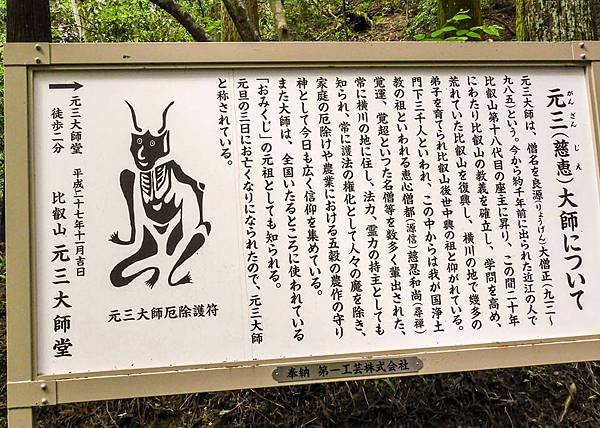 元三(慈恵)大師について
がんざん じえ
元三大師は、僧名を良源(りょうげん)大僧正(九一二〜
九八五)という。今から約千年前に出られた近江の人で
比叡山第十八代目の座主に昇り、この間二十年
にわたり比叡山の教義を確立し、学問を高め、
荒れていた比叡山を復興し、横川の地で幾多の
弟子を育てられ比叡山後世中興の祖と仰がれている。
門下三千人といわれ、この中からは我が国浄土
教の祖といわれる恵心僧都(源信)慈忍和尚(尋禅)
覚運、覚超といった名僧等を数多く輩出された、
常に横川の地に住し、法力、霊力の持主としても
知られ、常に護法の権化として人々の魔を除き、
家庭の厄除けや農業における五穀の農作の守り
神として今日も広く信仰を集めている。
また大師は、全国いたるところに使われている
「おみくじ」の元祖としても知られる。
元旦の三日にお亡くなりになられたので、元三大師
と称されている。
元三大師厄除護符
元三大師堂
徒歩二分
平成二十七年十一月吉日
比叡山 元三大師堂
奉納 第一工芸株式会社